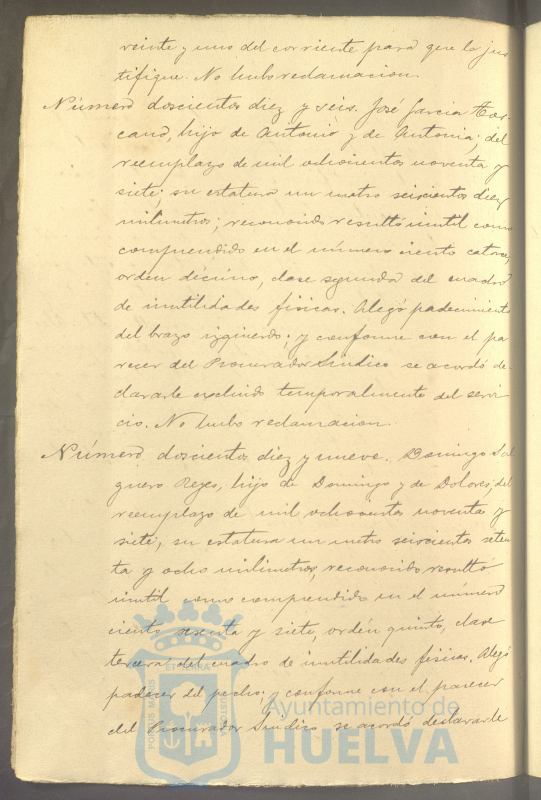 veinte y uno del corriente para que lo jus
tifique. No hubo reclamacion.
Número doscientos diez y seis. José Garcia Tos
cano, hijo de Antonio y de Antonia; del
reemplazo de mil ochocientos noventa y
siete; su estatura un metro seiscientos diez
milimetros; reconocido resultó inutil como
comprendido en el número ciento catorce,
orden décimo, clase segunda del cuadro
de inutilidades fisicas. Alegó padecimiento
del brazo izquierdo; y conforme con el pa
recer del Procurador Sindico se acordó de
clararle excluido temporalmente del servi
cio. No hubo reclamacion.
Número doscientos diez y nueve. Domingo Sal
guero Reyes, hijo de Domingo y de Dolores; del
reemplazo de mil ochocientos noventa y
siete; su estatura un metro seiscientos seten
ta y ocho milimetros, reconocido resultó
inutil como comprendido en el número
ciento sesenta y siete, orden quinto, clase
tercera del cuadro de inutilidades fisicas. Alegó
padecer del pecho; y conforme con el parecer
del Procurador Sindico se acordó declararle
PORTUS MARIS ET TERRÆ CUSTODIA
Ayuntamiento de
HUELVA